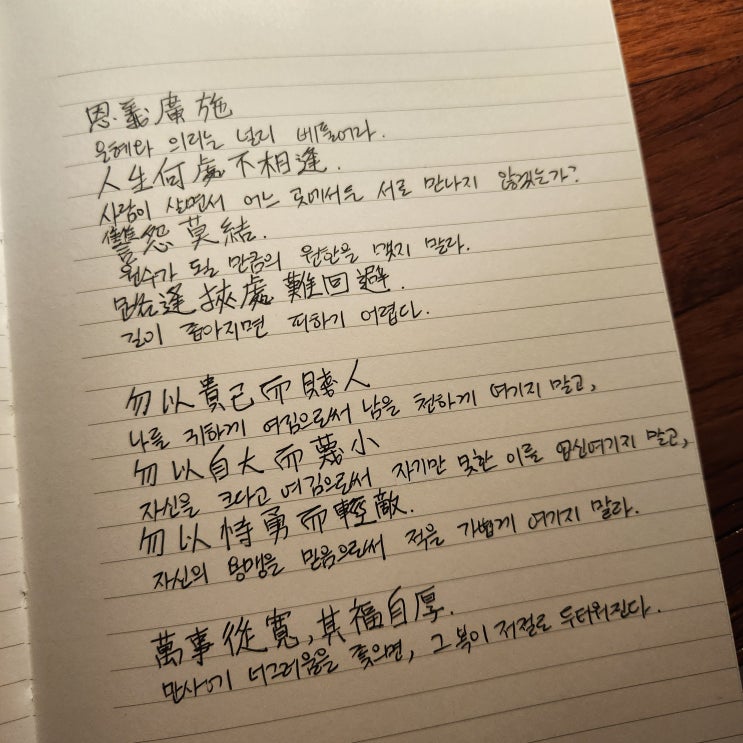 恩義廣施
은혜와 의리는 널리 베풀어라.
人生何處不相逢.
사람이 살면서 어느 곳에서든 서로 만나지 않겠는가?
讐怨莫結.
원수가 되고 만큼의 원한을 맺지 말라.
路逢狹處難回避.
길이 좁아지면 피하기 어렵다.
勿以貴己而賤人
나를 귀하게 여김으로써 남을 천하게 여기지 말고,
勿以自大而蔑小
자신을 크다고 여김으로써 자기만 못한 이를 업신여기지 말고,
勿以恃勇而輕敵.
자신의 용맹을 믿음으로써 적을 가볍게 여기지 말라.
萬事從寬, 其福自厚.
만사에 너그러움을 좇으면, 그 복이 저절로 두터워진다.